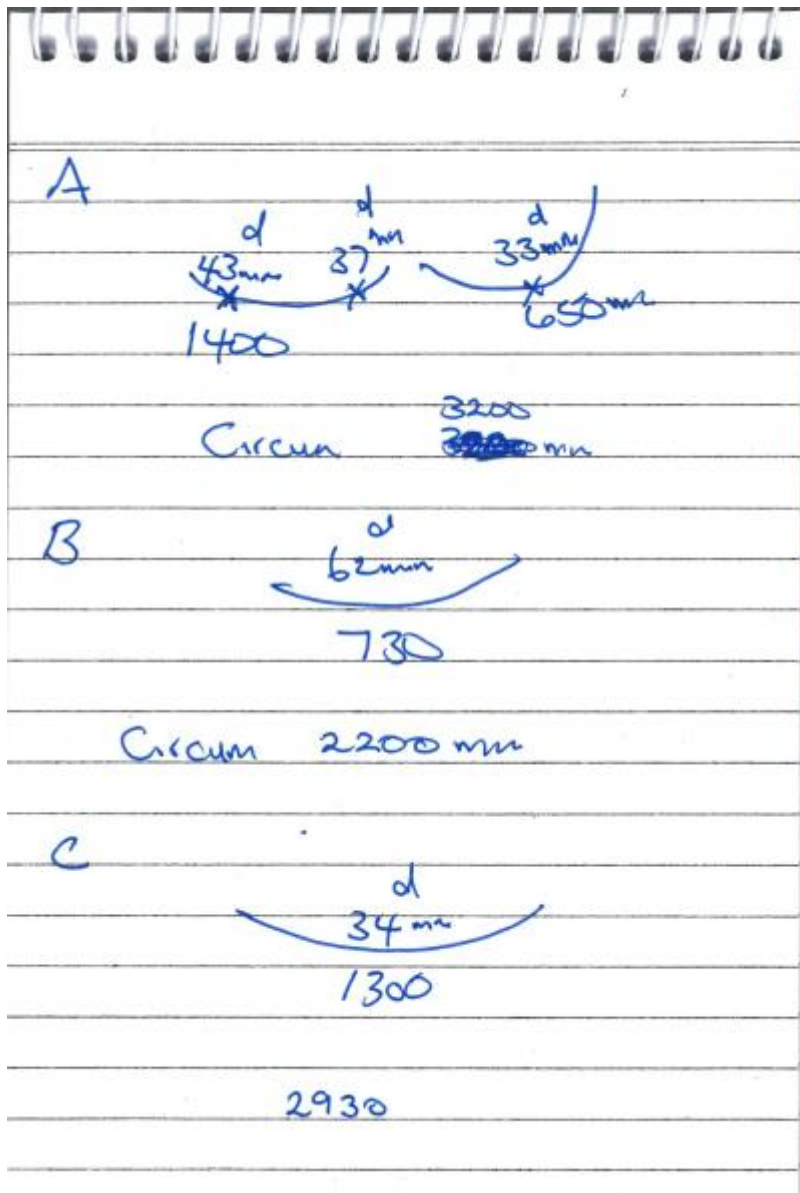 A
d d d
43mm 37mm 33mm
1400 650mm
3200
Circum mm
B
d
62mm
730
Circum 2200mm
C
d
34mm
1300
2930